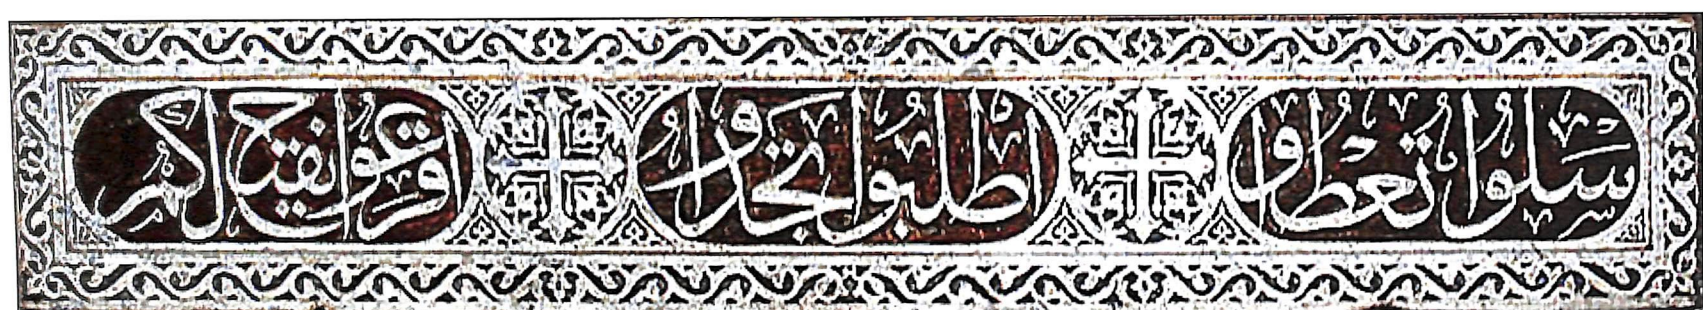 سلوا تعطوا اطلبوا تجدوا اقرعوا يفتح لكم